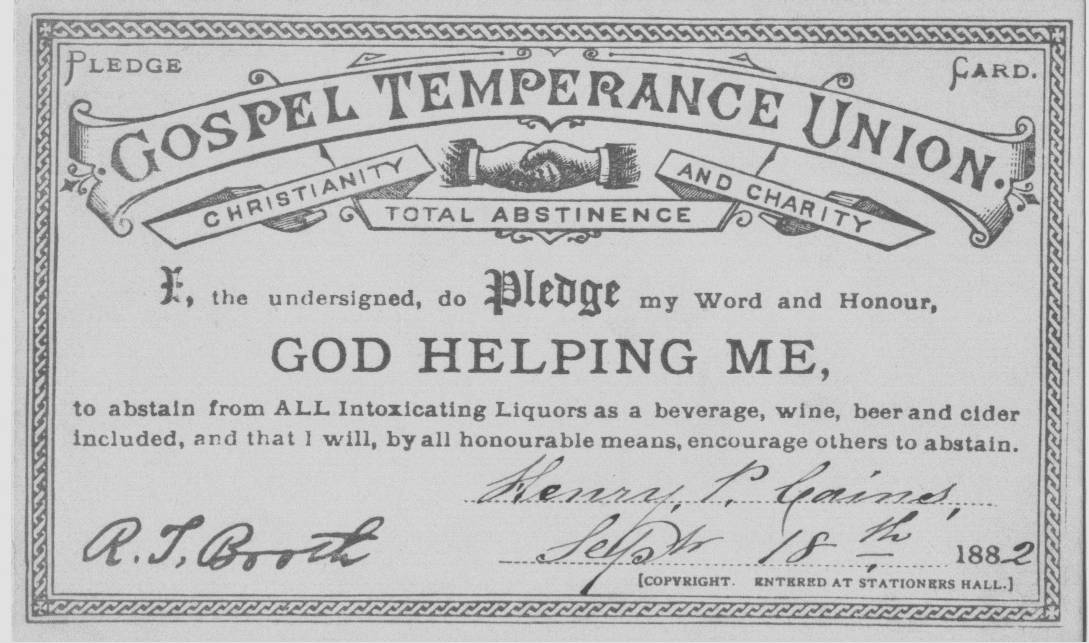 PLEDGE CARD.
GOSPEL TEMPERANCE UNION.
CHRISTIANITY AND CHARITY
TOTAL ABSTINENCE
I, the undersigned, do Pledge my Word and Honour,
GOD HELPING ME,
to abstain from ALL Intoxicating Liquors as a beverage, wine, beer and cider
included, and that I will, by all honourable means, encourage others to abstain.
Henry. P. Cains,
R. T. Booth
Septr 18th 1882
[COPYRIGHT. ENTERED AT STATIONERS HALL.]